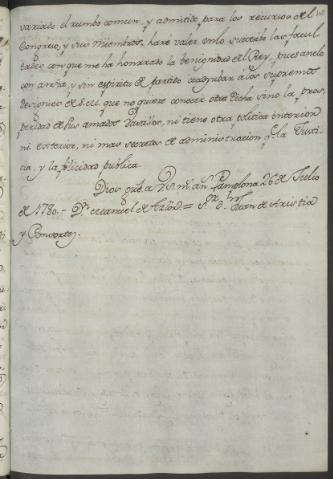 variado el rumbo comun, y admitido para los recursos del
Congreso, y sus Miembros, haré valer en lo sucesibo las facul-
tades con que me ha honrrado la benignidad del Rey, pues anelo
con ansia, y sin espiritu de partido coadyubar a los supremos
designios de S.M. que no quiere conocer otra dicha sino la pros-
peridad de sus amados Vasallos, ni tiene otra politica interior
ni exterior, ni mas secretos de administracion q.e la Justi-
cia, y la felicidad publica.
Dios gūe. a V.S. m.s an.s Pamplona 26 de Julio
de 1780. = D.n Manuel de Azlor = S.or D.n Juan de Aristia
y Consortes.